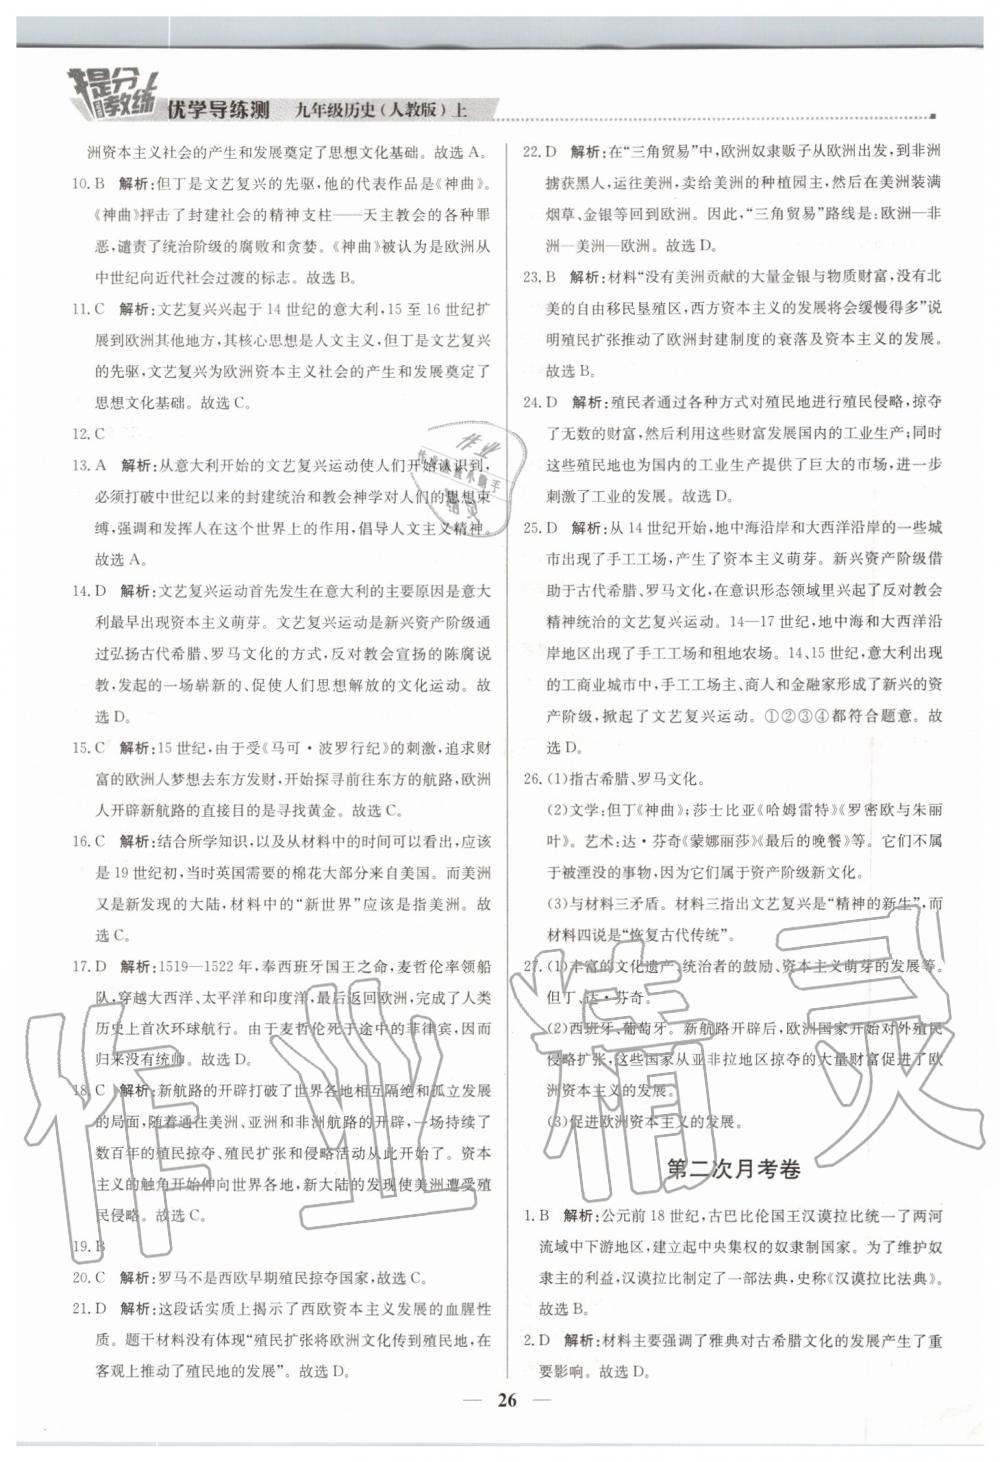 提分
教练
优学导练测 九年级历史(人教版)上
洲资本主义社会的产生和发展奠定了思想文化基础。故选A。
10. B 解析:但丁是文艺复兴的先驱,他的代表作品是《神曲》。
《神曲》抨击了封建社会的精神支柱——天主教会的各种罪
恶,谴责了统治阶级的腐败和贪婪。《神曲》被认为是欧洲从
中世纪向近代社会过渡的标志。故选B。
11. C 解析:文艺复兴兴起于14世纪的意大利,15至16世纪扩
展到欧洲其他地方,其核心思想是人文主义,但丁是文艺复兴
的先驱,文艺复兴为欧洲资本主义社会的产生和发展奠定了
思想文化基础。故选C。
12. C
13. A 解析:从意大利开始的文艺复兴运动使人们开始认识到,
必须打破中世纪以来的封建统治和教会神学对人们的思想束
缚,强调和发挥人在这个世界上的作用,倡导人文主义精神。
故选A。
14. D 解析:文艺复兴运动首先发生在意大利的主要原因是意大
利最早出现资本主义萌芽。文艺复兴运动是新兴资产阶级通
过弘扬古代希腊、罗马文化的方式,反对教会宣扬的陈腐说
教,发起的一场崭新的、促使人们思想解放的文化运动。故
选D。
15. C 解析:15世纪,由于受《马可·波罗行纪》的刺激,追求财
富的欧洲人梦想去东方发财,开始探寻前往东方的航路,欧洲
人开辟新航路的直接目的是寻找黄金。故选C。
16. C 解析:结合所学知识,以及从材料中的时间可以看出,应该
是19世纪初,当时英国需要的棉花大部分来自美国。而美洲
又是新发现的大陆,材料中的“新世界”应该是指美洲。故
选C。
17. D 解析:1519—1522年,奉西班牙国王之命,麦哲伦率领船
队,穿越大西洋、太平洋和印度洋,最后返回欧洲,完成了人类
历史上首次环球航行。由于麦哲伦死于途中的菲律宾,因而
归来没有统帅。故选D。
18. C 解析:新航路的开辟打破了世界各地相互隔绝和孤立发展
的局面,随着通往美洲、亚洲和非洲航路的开辟,一场持续了
数百年的殖民掠夺、殖民扩张和侵略活动从此开始了。资本
主义的触角开始伸向世界各地,新大陆的发现使美洲遭受殖
民侵略。故选C。
19. B
20. C 解析:罗马不是西欧早期殖民掠夺国家,故选C。
21. D 解析:这段话实质上揭示了西欧资本主义发展的血腥性
质。题干材料没有体现“殖民扩张将欧洲文化传到殖民地,在
客观上推动了殖民地的发展”。故选D。
22. D 解析:在“三角贸易”中,欧洲奴隶贩子从欧洲出发,到非洲
掳获黑人,运往美洲,卖给美洲的种植园主,然后在美洲装满
烟草、金银等回到欧洲。因此,“三角贸易”路线是:欧洲—非
洲—美洲—欧洲。故选D。
23. B 解析:材料“没有美洲贡献的大量金银与物质财富,没有北
美的自由移民垦殖区,西方资本主义的发展将会缓慢得多”说
明殖民扩张推动了欧洲封建制度的衰落及资本主义的发展。
故选B。
24. D 解析:殖民者通过各种方式对殖民地进行殖民侵略,掠夺
了无数的财富,然后利用这些财富发展国内的工业生产;同时
这些殖民地也为国内的工业生产提供了巨大的市场,进一步
刺激了工业的发展。故选D。
25. D 解析:从14世纪开始,地中海沿岸和大西洋沿岸的一些城
市出现了手工工场,产生了资本主义萌芽。新兴资产阶级借
助于古代希腊、罗马文化,在意识形态领域里兴起了反对教会
精神统治的文艺复兴运动。14—17世纪,地中海和大西洋沿
岸地区出现了手工工场和租地农场。14、15世纪,意大利出现
的工商业城市中,手工工场主、商人和金融家形成了新兴的资
产阶级,掀起了文艺复兴运动。①②③④都符合题意。故
选D。
26. (1)指古希腊、罗马文化。
(2)文学:但丁《神曲》;莎士比亚《哈姆雷特》《罗密欧与朱丽
叶》。艺术:达·芬奇《蒙娜丽莎》《最后的晚餐》等。它们不属
于被湮没的事物,因为它们属于资产阶级新文化。
(3)与材料三矛盾。材料三指出文艺复兴是“精神的新生”,而
材料四说是“恢复古代传统”。
27. (1)丰富的文化遗产、统治者的鼓励、资本主义萌芽的发展等。
但丁、达·芬奇。
(2)西班牙、葡萄牙。新航路开辟后,欧洲国家开始对外殖民
侵略扩张,这些国家从亚非拉地区掠夺的大量财富促进了欧
洲资本主义的发展。
(3)促进欧洲资本主义的发展。
第二次月考卷
1. B 解析:公元前18世纪,古巴比伦国王汉谟拉比统一了两河
流域中下游地区,建立起中央集权的奴隶制国家。为了维护奴
隶主的利益,汉谟拉比制定了一部法典,史称《汉谟拉比法典》。
故选B。
2. D 解析:材料主要强调了雅典对古希腊文化的发展产生了重
要影响。故选D。
— 26 —
作业精灵